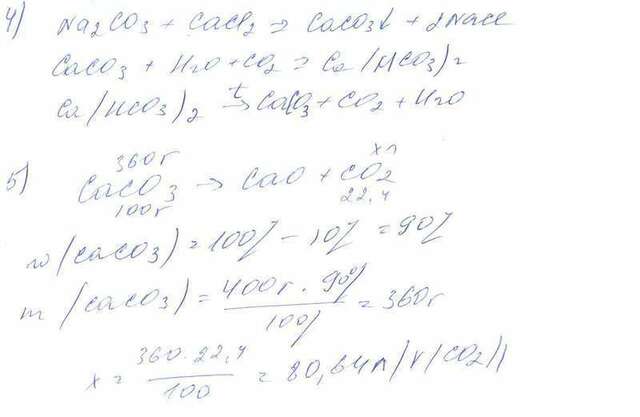 4) Na2CO3 + CaCl2 → CaCO3↓ + 2NaCl
CaCO3 + H2O + CO2 → Ca(HCO3)2
Ca(HCO3)2 t→ CaCO3 + CO2 + H2O
360г x л
5) CaCO3 → CaO + CO2
100г 22,4
w(CaCO3) = 100% - 10% = 90%
m(CaCO3) = 400г · 90% / 100% = 360г
x = 360 · 22,4 / 100 = 80,64л (V(CO2))